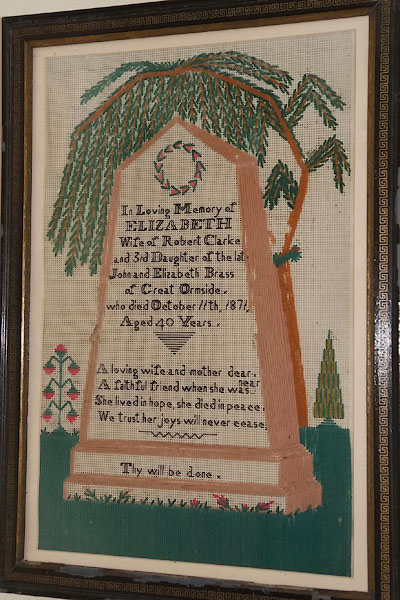 In Loving Memory of
ELIZABETH
Wife of Robert Clarke
and 3rd Daughter of the late
John and Elizabeth Brass
of Great Ormside.
who died October 11th, 1871,
Aged 40 Years.
A loving wife and mother dear.
A faithful friend when she was near
She lived in hope, she died in peace.
We trust her joys will never cease.
Thy will be done.